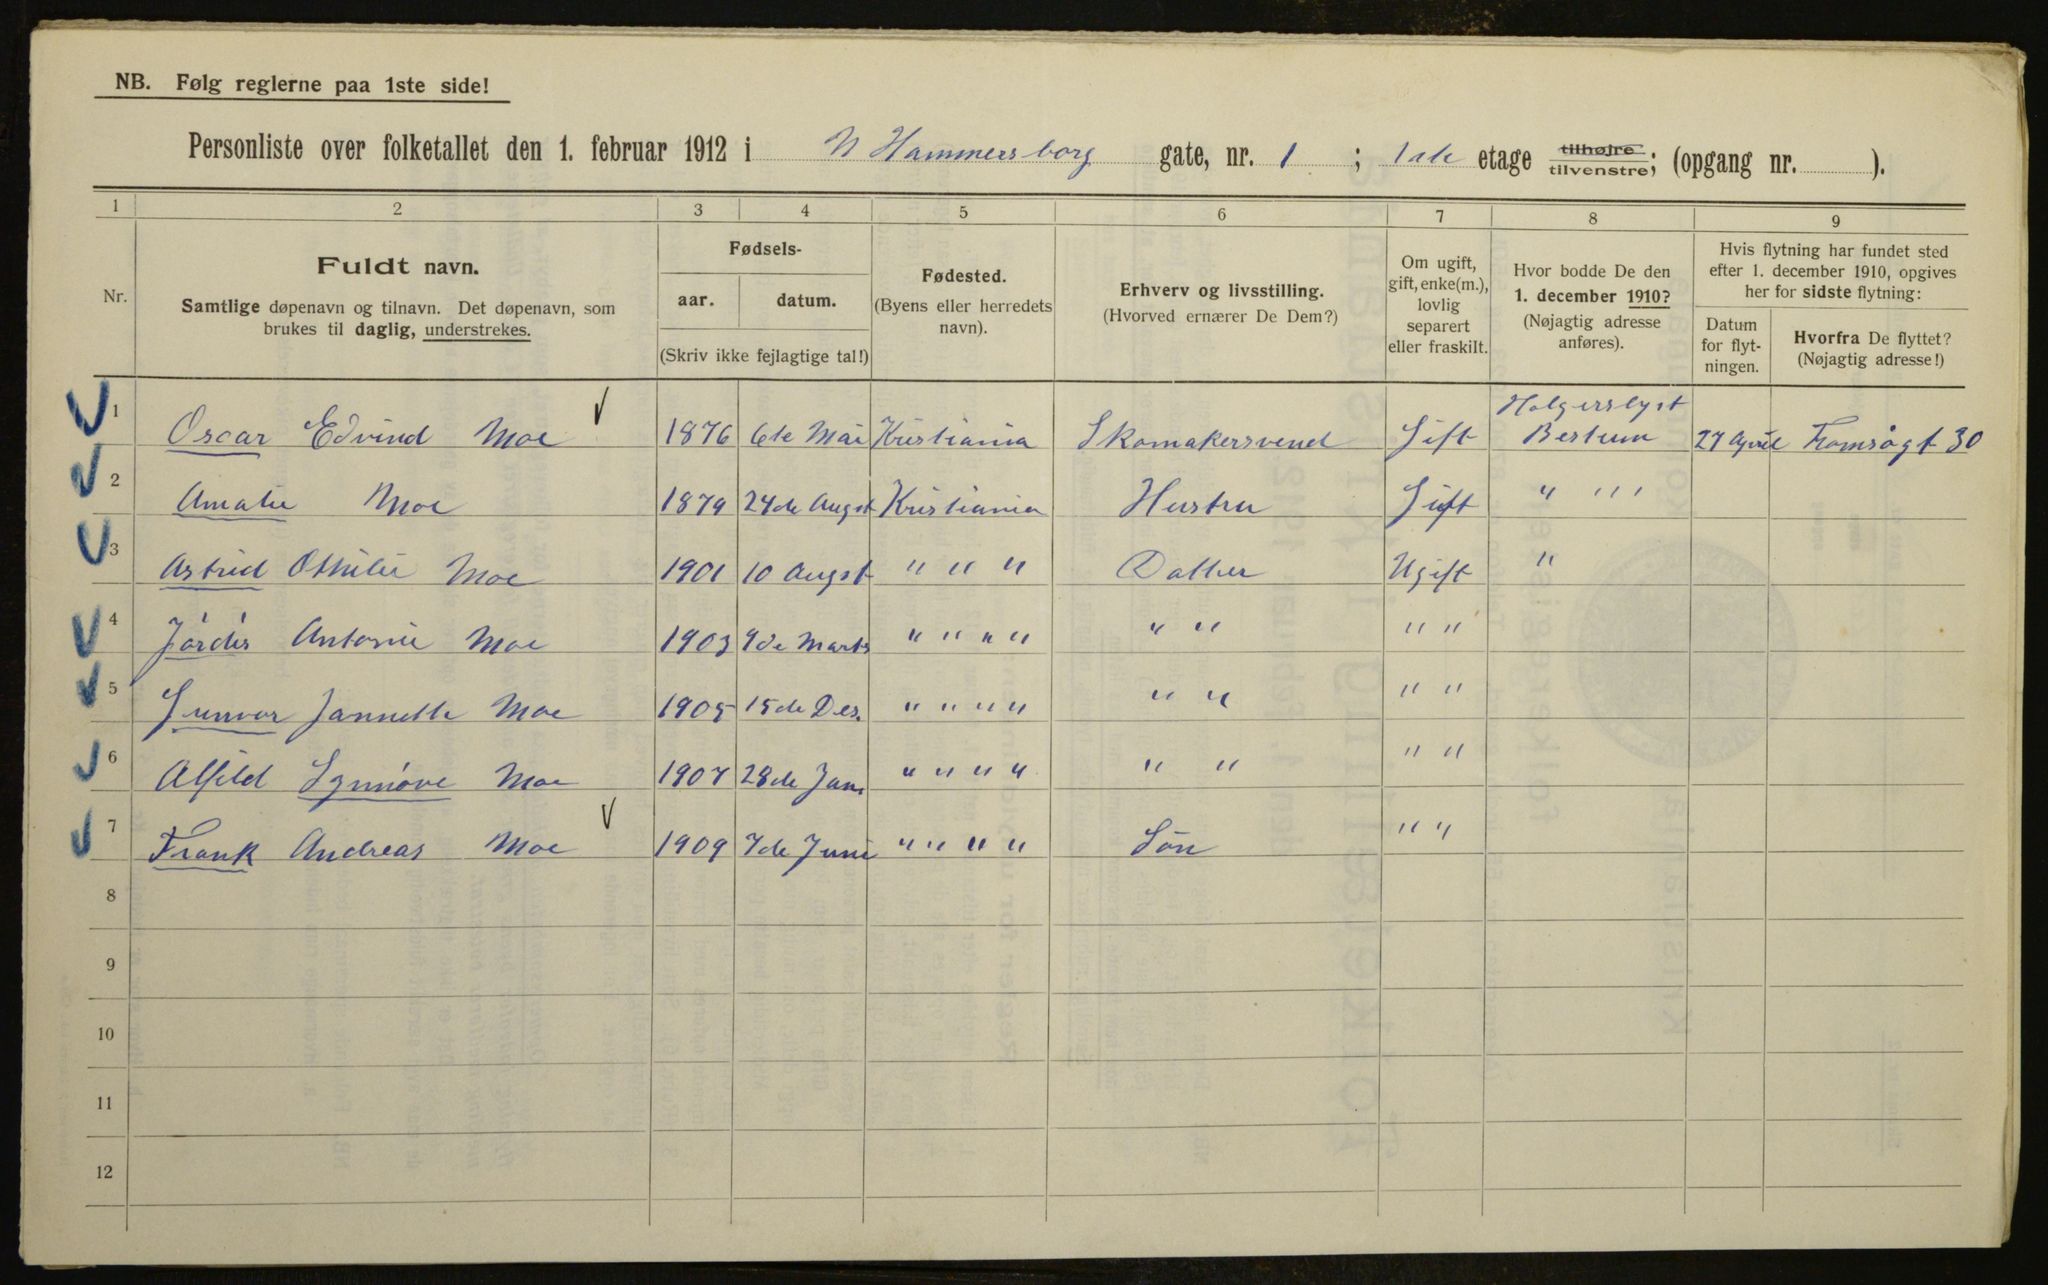 NB. Følg reglerne paa 1ste side!
Personliste over folketallet den 1. februar 1912 i N Hammersborg gate, nr. 1 ; 1ste etage tilhøjre tilvenstre; (opgang nr. ).
1 2 3 4 5 6 7 8 9
Nr.
Fuldt navn.
Samtlige døpenavn og tilnavn. Det døpenavn, som
brukes til daglig, understrekes.
Fødsels-
aar. datum.
(Skriv ikke fejlagtige tal!)
Fødested.
(Byens eller herredets
navn).
Erhverv og livsstilling.
(Hvorved ernærer De Dem?)
Om ugift,
gift, enke(m.),
lovlig
separert
eller fraskilt.
Hvor bodde De den
1. december 1910?
(Nøjagtig adresse
anføres).
Hvis flytning har fundet sted
efter 1. december 1910, opgives
her for sidste flytning:
Datum
for flyt-
ningen.
Hvorfra De flyttet?
(Nøjagtig adresse!)
Holgerslyst
1 Oscar Edvind Moe 1876 6te Mai Kristiania Skomakersvend Gift Bestum 27 April Tromsøgt 30
2 Amalie Moe 1879 24de Augst Kristiania Hustru Gift " " "
3 Astrid Othilie Moe 1901 10 Augst " " " Datter Ugift "
4 Jørdis Antonie Moe 1903 9de Marts " " " " " " " "
5 Gunvor Jannette Moe 1905 15de Des. " " " " " " " "
6 Alfild Synnøve Moe 1907 28de Jan. " " " " " " " "
7 Frank Andreas Moe 1909 7de Juni " " " " Søn " "
8
9
10
11
12